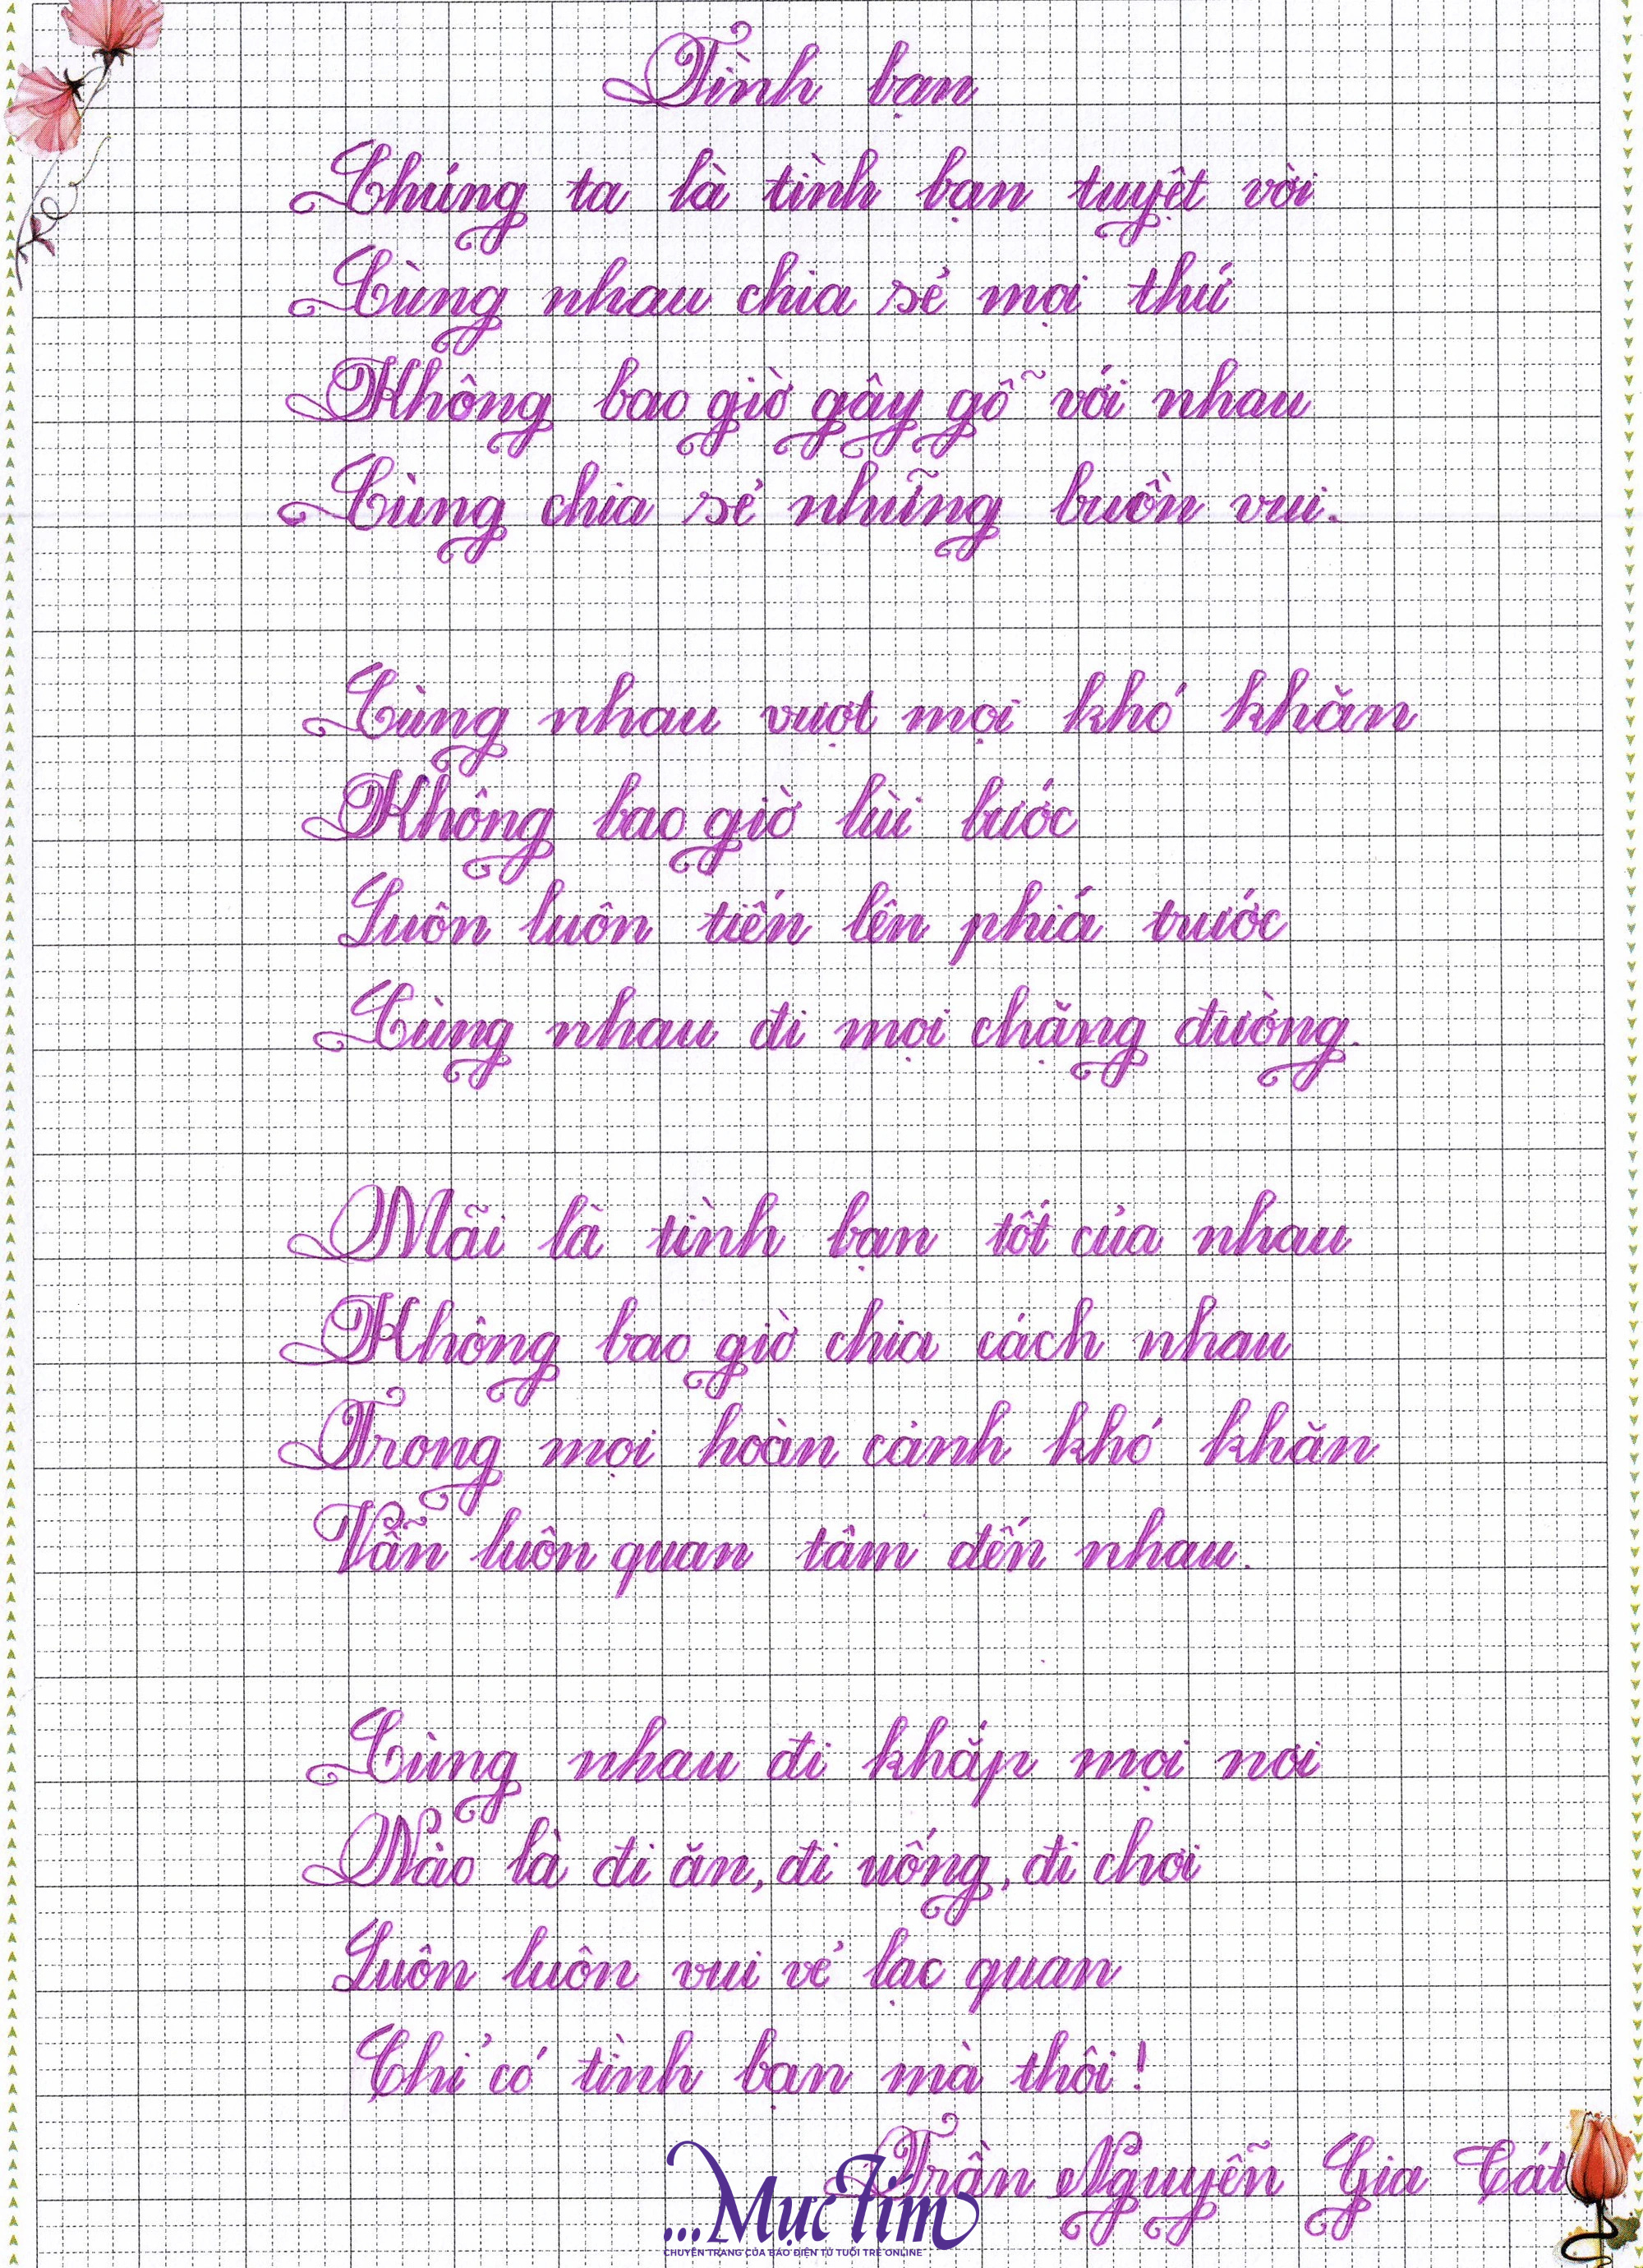 Tình bạn
Chúng ta là tình bạn tuyệt vời
Cùng nhau chia sẻ mọi thứ
Không bao giờ gây gỗ với nhau
Cùng chia sẻ những buồn vui.
Cùng nhau vượt mọi khó khăn
Không bao giờ lùi bước
Luôn luôn tiến lên phiá trước
Cùng nhau đi mọi chặng đường.
Mãi là tình bạn tốt của nhau
Không bao giờ chia cách nhau
Trong mọi hoàn cảnh khó khăn
Vẫn luôn quan tâm đến nhau.
Cùng nhau đi khắp mọi nơi
Nào là đi ăn, đi uống, đi chơi
Luôn luôn vui vẻ lạc quan
Chỉ có tình bạn mà thôi!
Trần Nguyễn Gia Cát
...Mực Tím
CHUYÊN TRANG CỦA BÁO ĐIỆN TỬ TUỔI TRẺ ONLINE